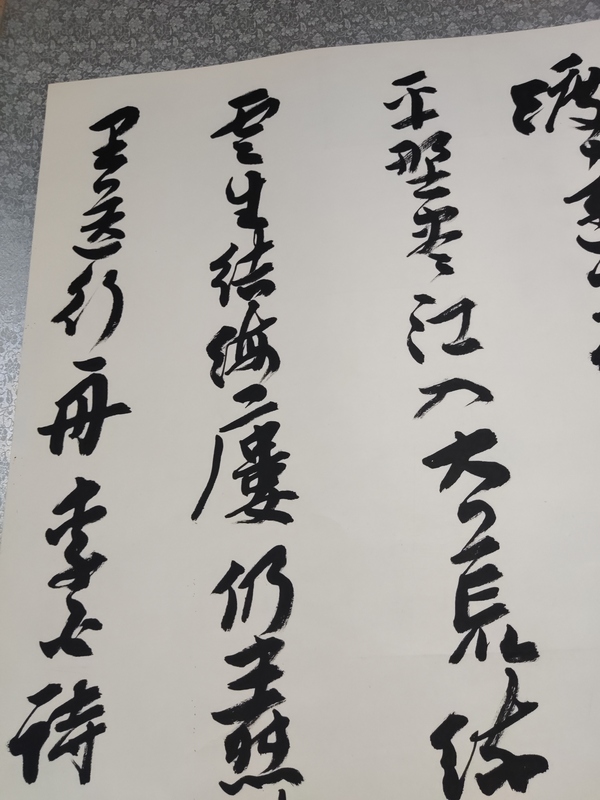 渡遠
平野尽江入大荒流
雲生結海樓仍憐
里送行舟李白詩